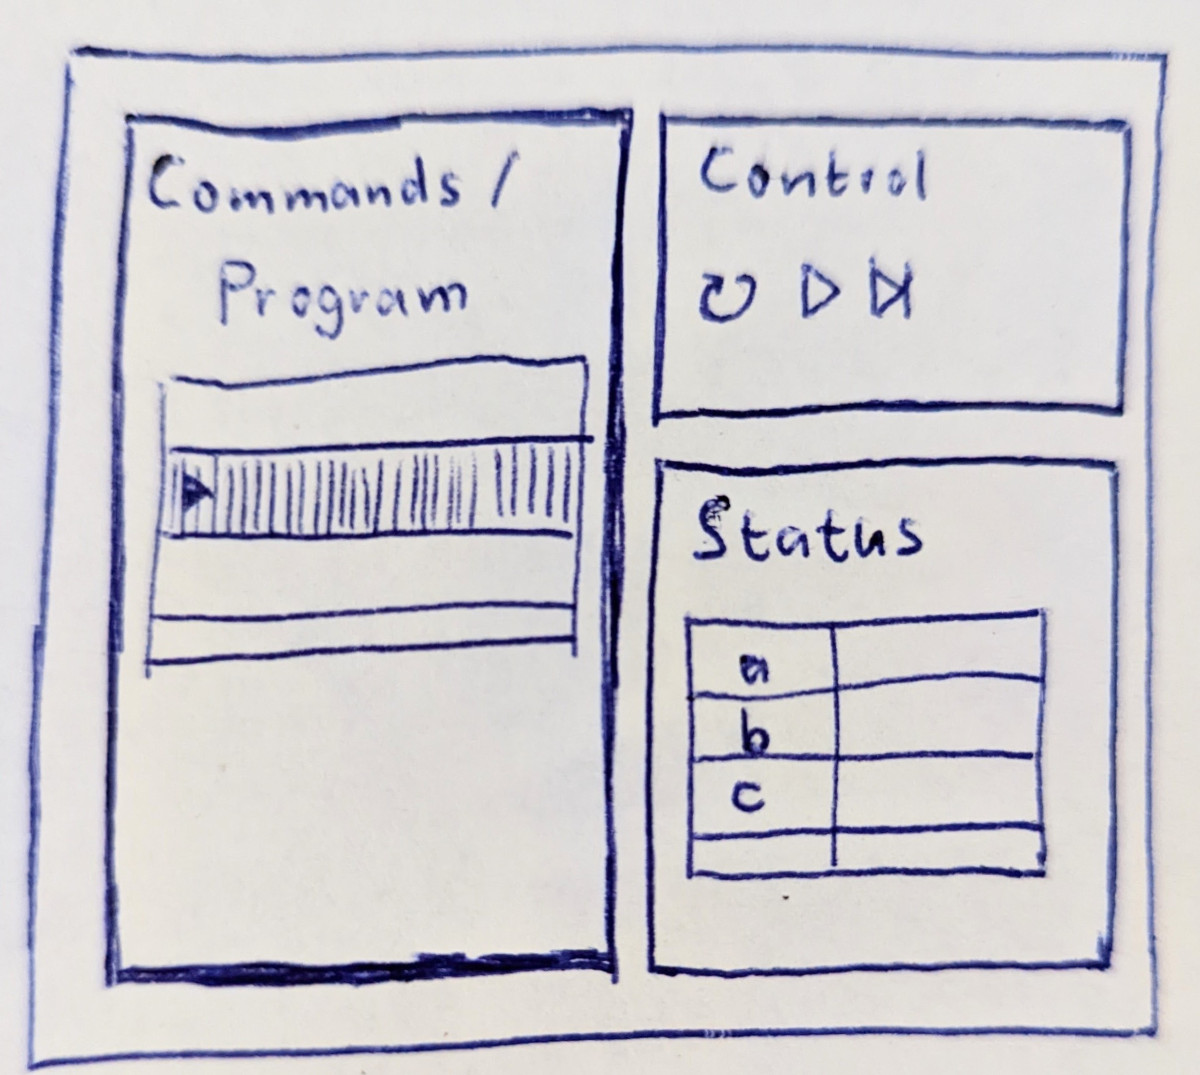 Commands /
Program
Control
Status
a
b
c